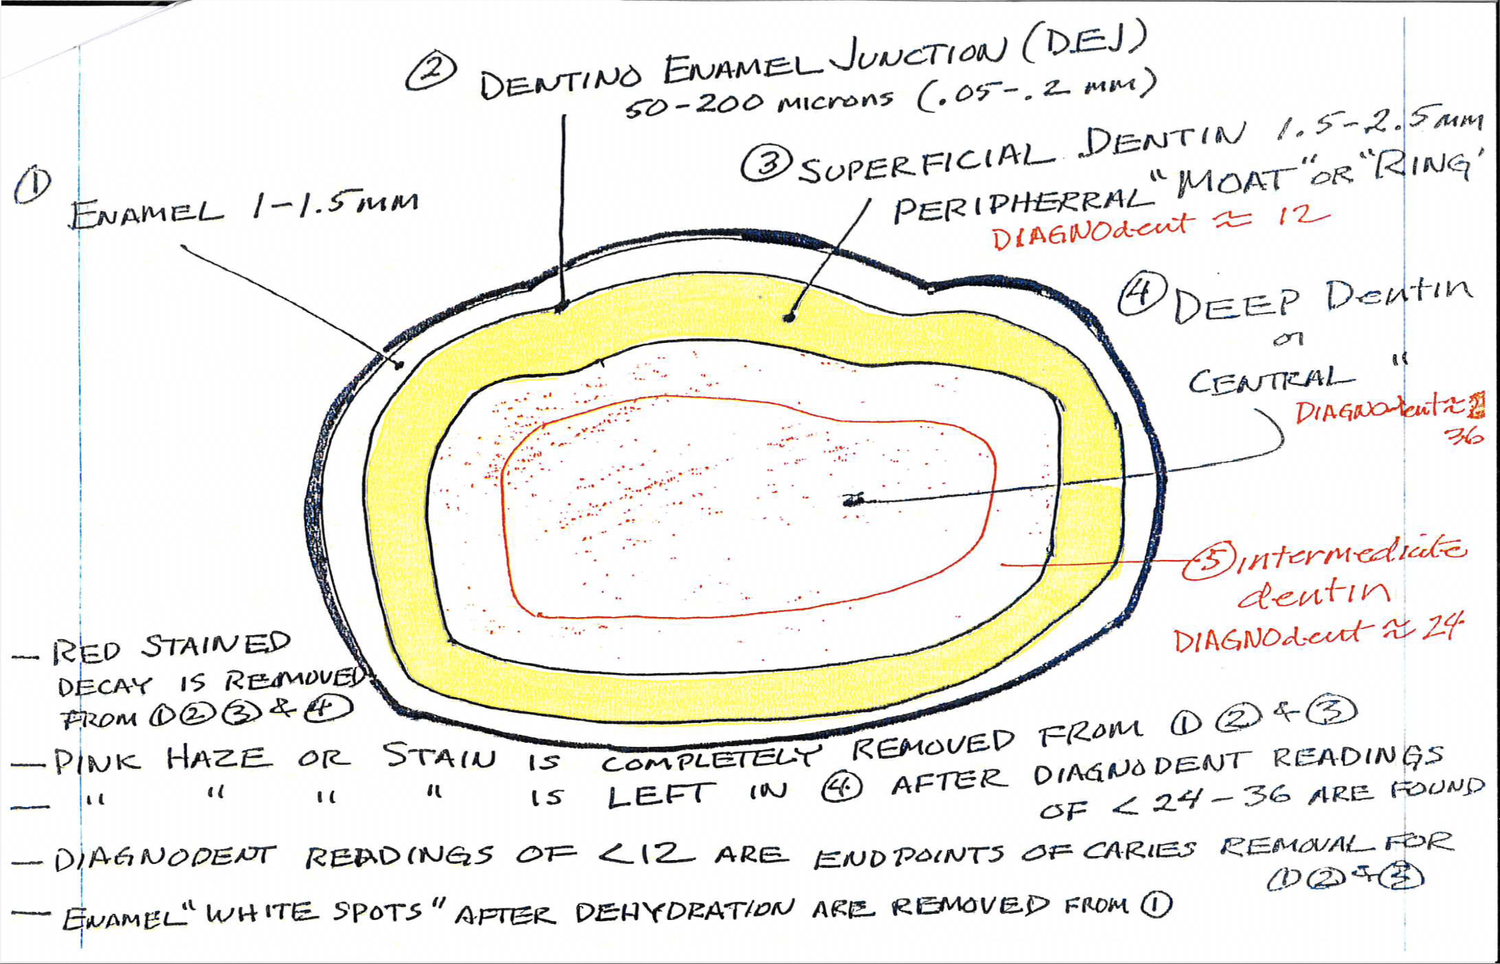 ② DENTINO ENAMEL JUNCTION (DEJ)
50-200 microns (.05-.2 mm)
③ SUPERFICIAL DENTIN 1.5-2.5mm
PERIPHERRAL "MOAT" OR "RING'
DIAGNOdent ≈ 12
① ENAMEL 1-1.5mm
④ DEEP Dentin
or
CENTRAL "
DIAGNOdent ≈
36
⑤ intermediate
dentin
DIAGNOdent ≈ 24
— RED STAINED
DECAY IS REMOVED
FROM ① ② ③ & ④
— PINK HAZE OR STAIN IS COMPLETELY REMOVED FROM ① ② & ③
— " " " " IS LEFT IN ④ AFTER DIAGNODENT READINGS
OF < 24-36 ARE FOUND
— DIAGNODENT READINGS OF <12 ARE ENDPOINTS OF CARIES REMOVAL FOR
① ② & ③
— ENAMEL "WHITE SPOTS" AFTER DEHYDRATION ARE REMOVED FROM ①